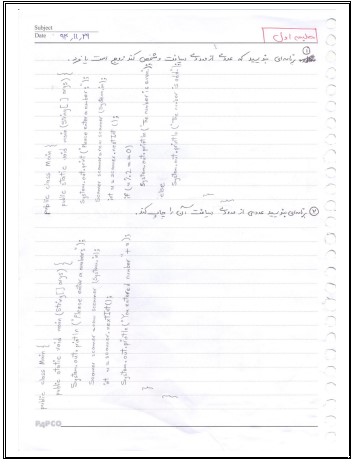 Subject
Date
جلسه اول
① برنامه‌ای بنویسید که عددی از ورودی دریافت و مشخص کند زوج است یا فرد.
public class Main {
public static void main (String[] args) {
System.out.print ("Please enter a number:");
Scanner scanner = new scanner (System.in);
int n = scanner.nextInt();
if (n % 2 == 0)
System.out.println ("The number is even");
else
System.out.println ("The number is odd");
② برنامه‌ای بنویسید عددی از ورودی دریافت آن را چاپ کند.
public class Main {
public static void main (String[] args) {
System.out.println ("Please enter a number");
Scanner scanner = new scanner (System.in);
int n = scanner.nextInt();
System.out.println ("You entered number" + n);
}
}
PAPCO